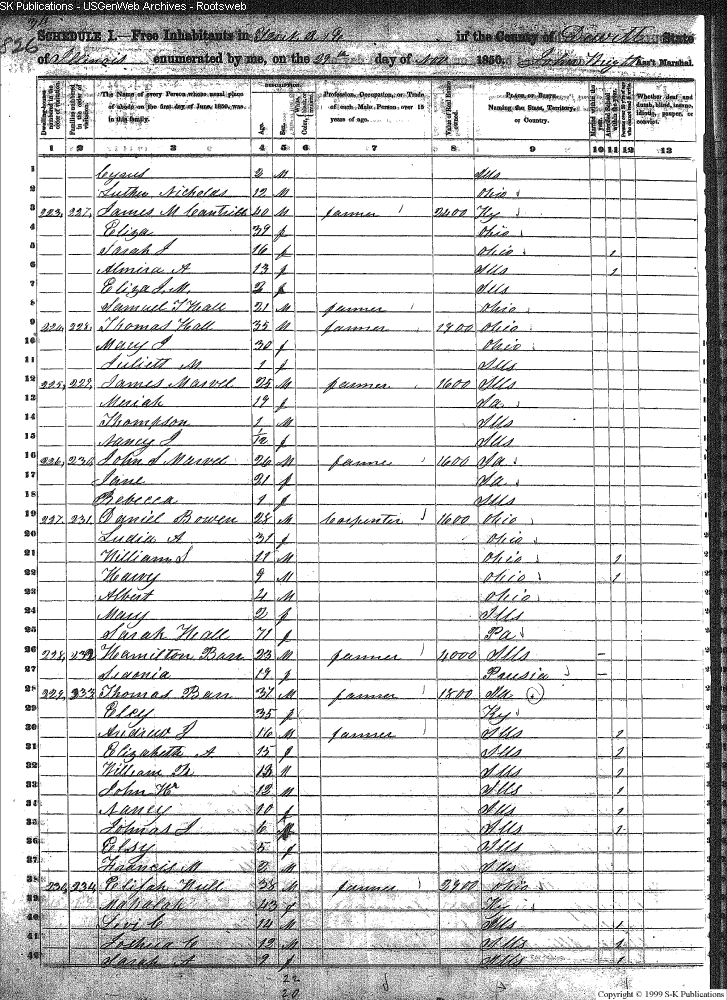 SK Publications - USGenWeb Archives - Rootsweb
826
SCHEDULE I.—Free Inhabitants in in the County of Dewitt State
of Illinois enumerated by me, on the 29th day of Nov 1850. Ass't Marshal.
Dwelling-houses numbered in the order of visitation.
Families numbered in the order of visitation.
The Name of every Person whose usual place of abode on the first day of June, 1850, was in this family.
DESCRIPTION.
Age.
Sex.
Profession, Occupation, or Trade of each Male Person over 15 years of age.
Value of Real Estate owned.
PLACE OF BIRTH. Naming the State, Territory, or Country.
Married within the year.
Whether deaf and dumb, blind, insane, idiotic, pauper, or convict.
1 2 3 4 5 6 7 8 9 10 11 12 13
1 Cyrus 2 M Ills
2 Luther Nicholds 12 M Ohio
3 223 227 James M Cantrill 40 M farmer 2400 Ky
4 Eliza 39 f Ohio
5 Sarah J 16 f Ohio 1
6 Almira A 13 f Ills 1
7 Eliza J. M. 2 f Ills
8 Samuel T Hall 21 M farmer Ohio
9 224 228 Thomas Hall 35 M farmer Ohio
10 Mary J 30 f Ohio
11 Juliett M 1 f Ills
12 225 229 James Marvel 25 M farmer 1600 Ills
13 19 f Ia
14 Thompson 1 M Ills
15 Nancy J 1/12 f Ills
16 226 230 John S Marvel 26 M farmer 1600 Ia
17 Jane 21 f Ia
18 Rebecca 1 f Ills
19 227 231 Daniel Bowen 28 M Carpenter 1600 Ohio
20 Ludia A 31 f Ohio
21 William S 11 M Ohio 1
22 Harvy 9 M Ohio 1
23 Albert 4 M Ohio
24 Mary 2 f Ills
25 Sarah Hall 71 f Pa
26 228 232 Hamilton Barr 23 M farmer 4000 Ills
27 Sidonia 19 f Prusia
28 229 233 Thomas Barr 37 M farmer 1800
29 Elcy 35 f Ky
30 Andrew J 16 M farmer Ills 1
31 Elizabeth A 15 f Ills 1
32 William Ills 1
33 John 12 M Ills 1
34 Nancy 10 f Ills 1
35 Thomas J 6 M Ills 1
36 Elsy 5 f Ills
37 Francis M 2 M Ills
38 230 234 Hull 38 M farmer Ohio
39 Mahalah 43 f Ky
40 Levi C 14 M Ills 1
41 Joshua C 12 M Ills 1
42 Sarah A 9 f Ills 1
22
20
Copyright © 1999 S-K Publications